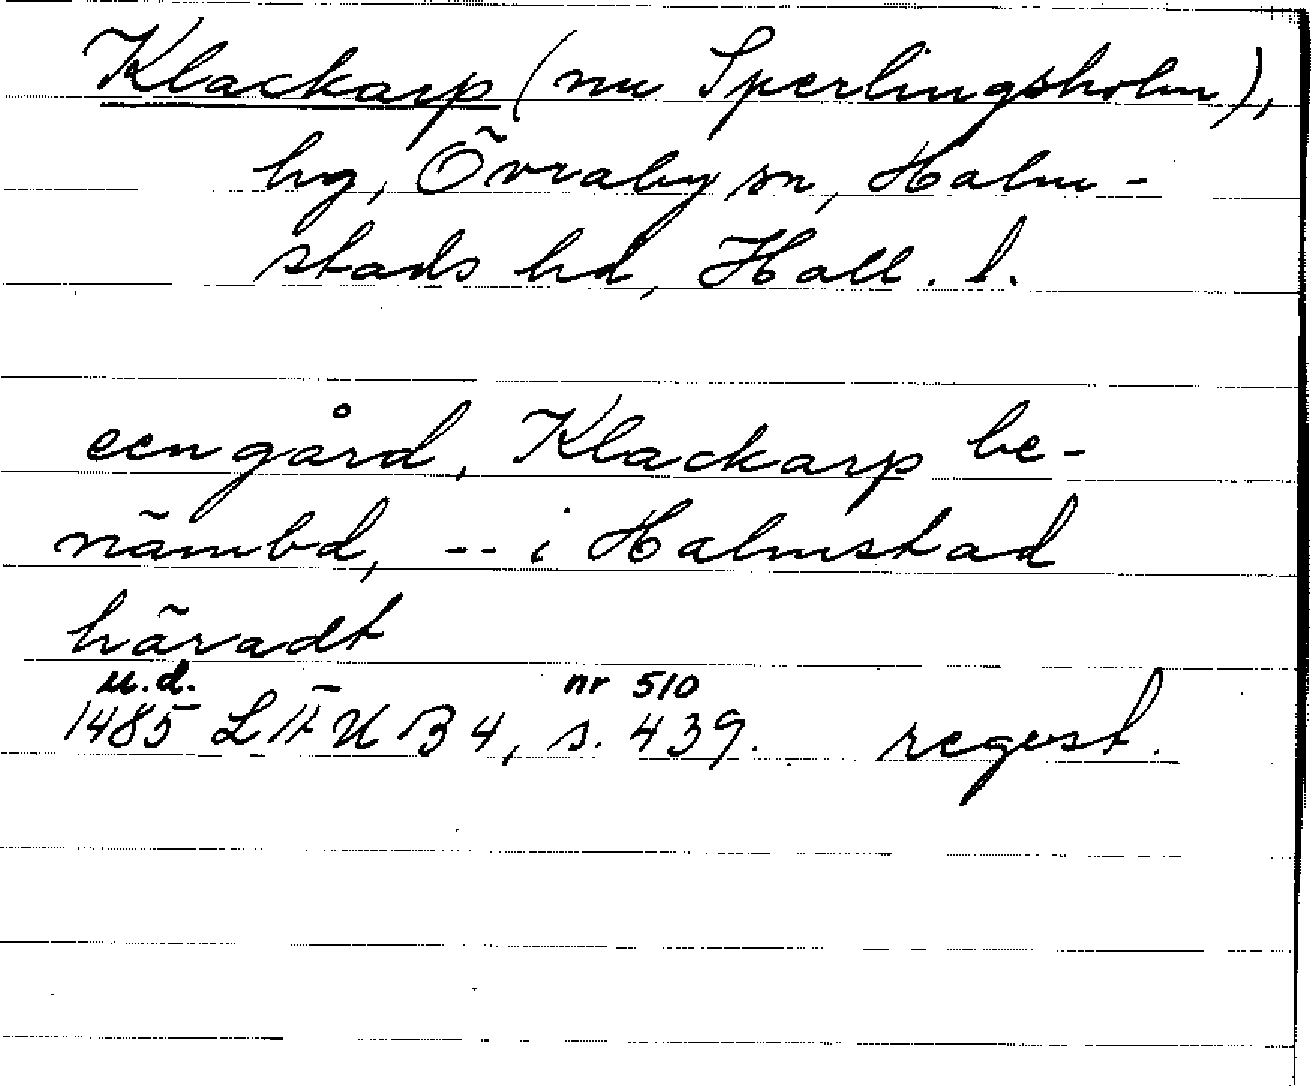 Klackarp (nu Sperlingsholm),
hg, Övraby sn, Halm-
stads hd, Hall. l.
een gård, Klackarp be-
nämbd, -- i Halmstad
häradt
u.d. nr 510
1485 LÄUB 4, s. 439. regest.